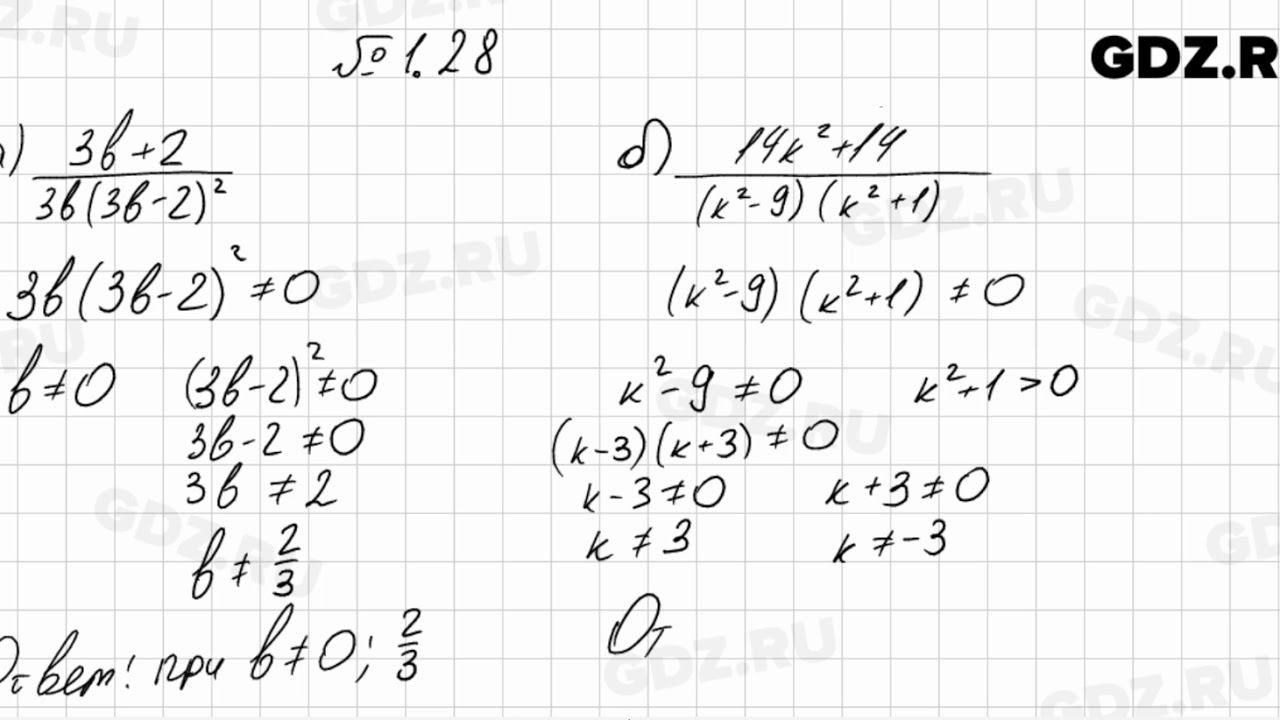 № 1.28
GDZ.R
а) (3b+2)/(3b(3b-2)²)
3b(3b-2)² ≠ 0
b ≠ 0 (3b-2)² ≠ 0
3b-2 ≠ 0
3b ≠ 2
b ≠ 2/3
Ответ: при b ≠ 0; 2/3
б) (14к²+14)/((к²-9)(к²+1))
(к²-9)(к²+1) ≠ 0
к²-9 ≠ 0 к²+1 > 0
(к-3)(к+3) ≠ 0
к-3 ≠ 0 к+3 ≠ 0
к ≠ 3 к ≠ -3
От